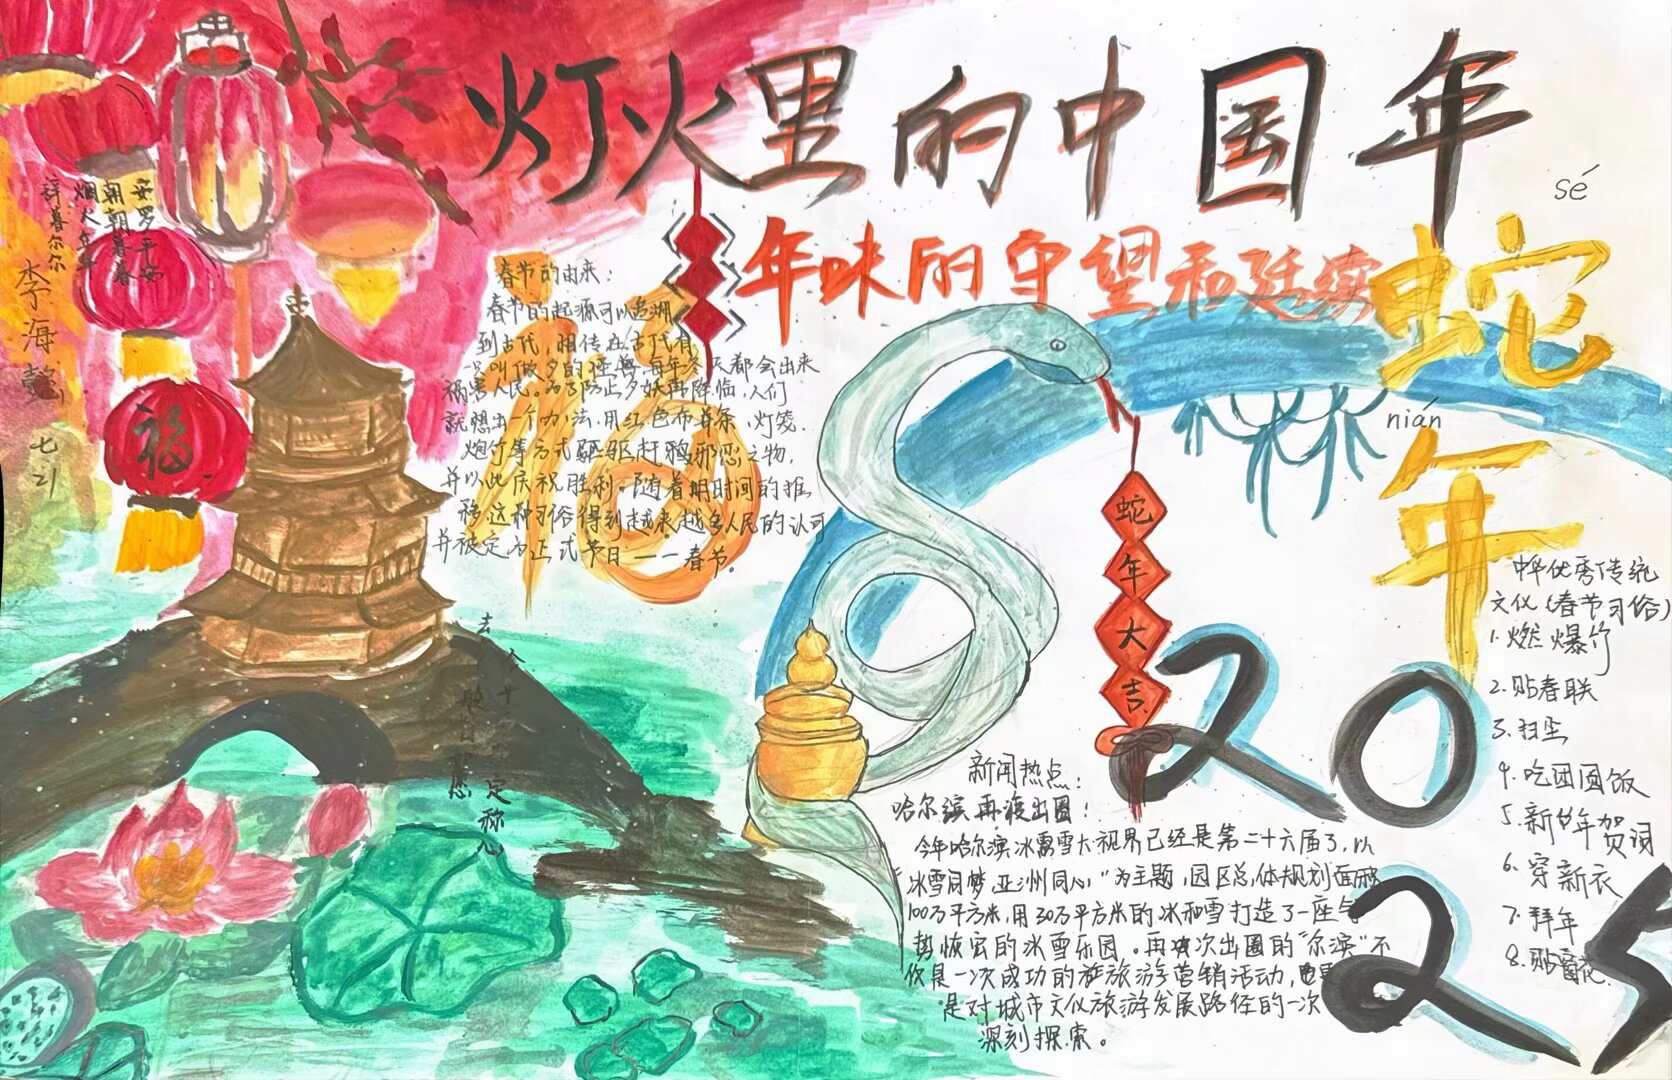 灯火里的中国年
年味的守望和延续
sé
蛇
nián
年
岁岁平安
朝朝暮暮
烟火年年
辞暮尔尔
李海馨
七21
福
福
春节的由来：
春节的起源可以追溯
到古代，相传在古代有
一只叫做夕的怪兽，每年冬天都会出来
祸害人民。为了防止夕妖再降临，人们
就想出一个办法，用红色布
条、灯笼、
炮竹等方式驱赶邪恶之物，
并以此庆祝胜利。随着时间的推
移这种习俗得到越来越多人民的认可
并被定为正式节日——春节。
蛇年大吉
2025
新闻热点：
哈尔滨再度出圈！
今年哈尔滨冰雪大视界已经是第二十六届了，以
“冰雪同梦，亚洲同心，”为主题，园区总体规划面积
100万平方米，用30万平方米的冰和雪打造了一座气
势恢宏的冰雪乐园。再次出圈的“尔滨”不
仅是一次成功的旅游营销活动，也
是对城市文化旅游发展路径的一次
深刻探索。
中华优秀传统
文化（春节习俗）
1.燃爆竹
2.贴春联
3.扫尘
4.吃团圆饭
5.新年贺词
6.穿新衣
7.拜年
8.贴窗花.